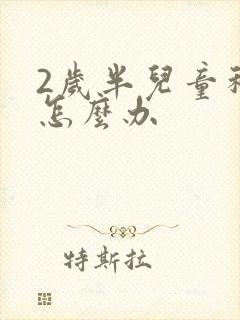 2歲半兒童
怎麼办
特斯拉